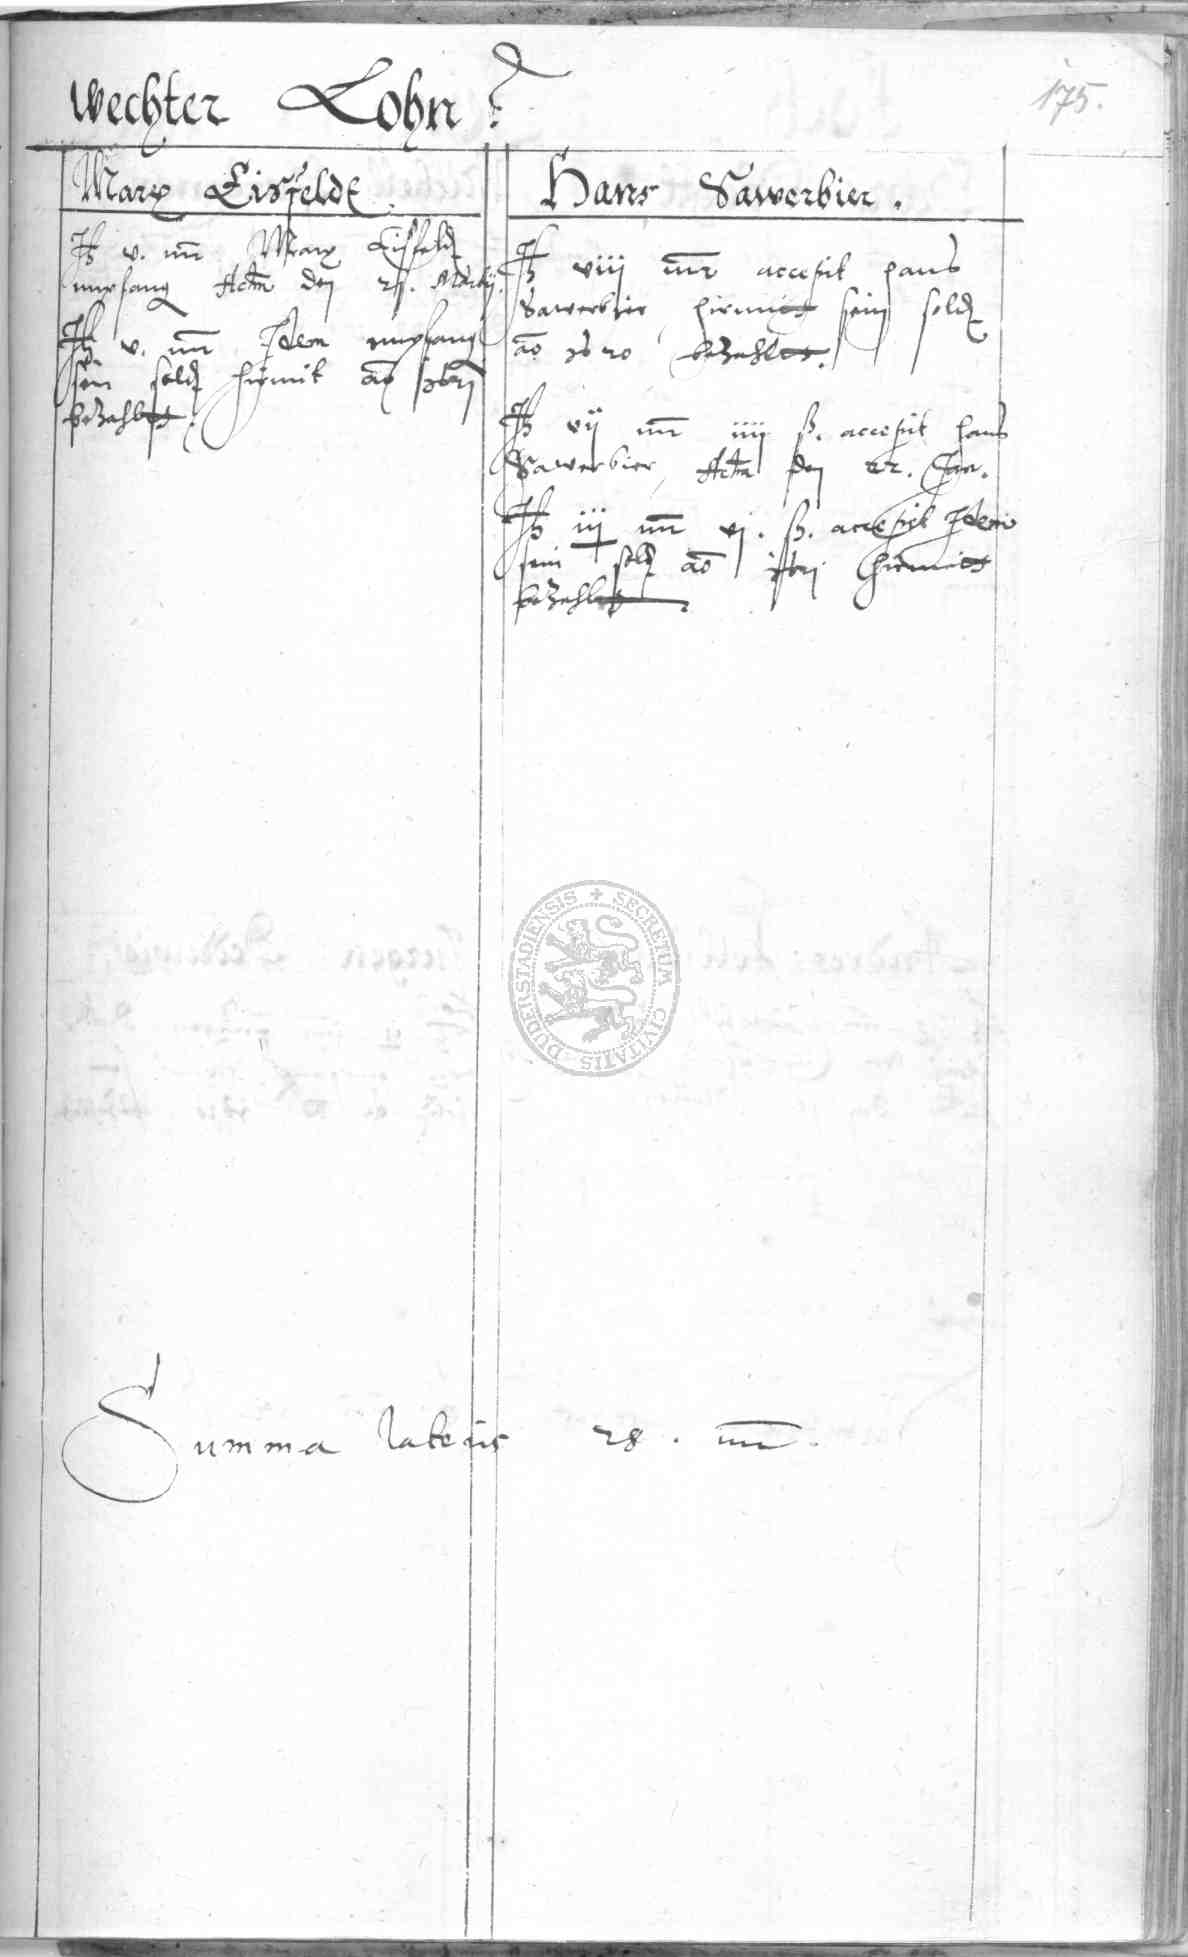 175.
Wechter Lohn
Marx Eisfeldt.
It v. mr Marx Eisfeldt
empfang Actm den 21. Martij.
It v. mr Idem empfang
sein soldt hirmit ao
bezahlt.
Hans Sawerbier.
It viij mr accepit hans
Sawerbier hirmitt sein soldt
ao 1620 bezahltt.
It vij mr iiij ß. accepit hans
Sawerbier, Actm den 22. Jan.
It iij mr vj. ß. accepit Idem
sein soldt ao hirmitt
bezahltt.
SECRETUM CIVITATIS DUDERSTADIENSIS
Summa lateris 28. mr.